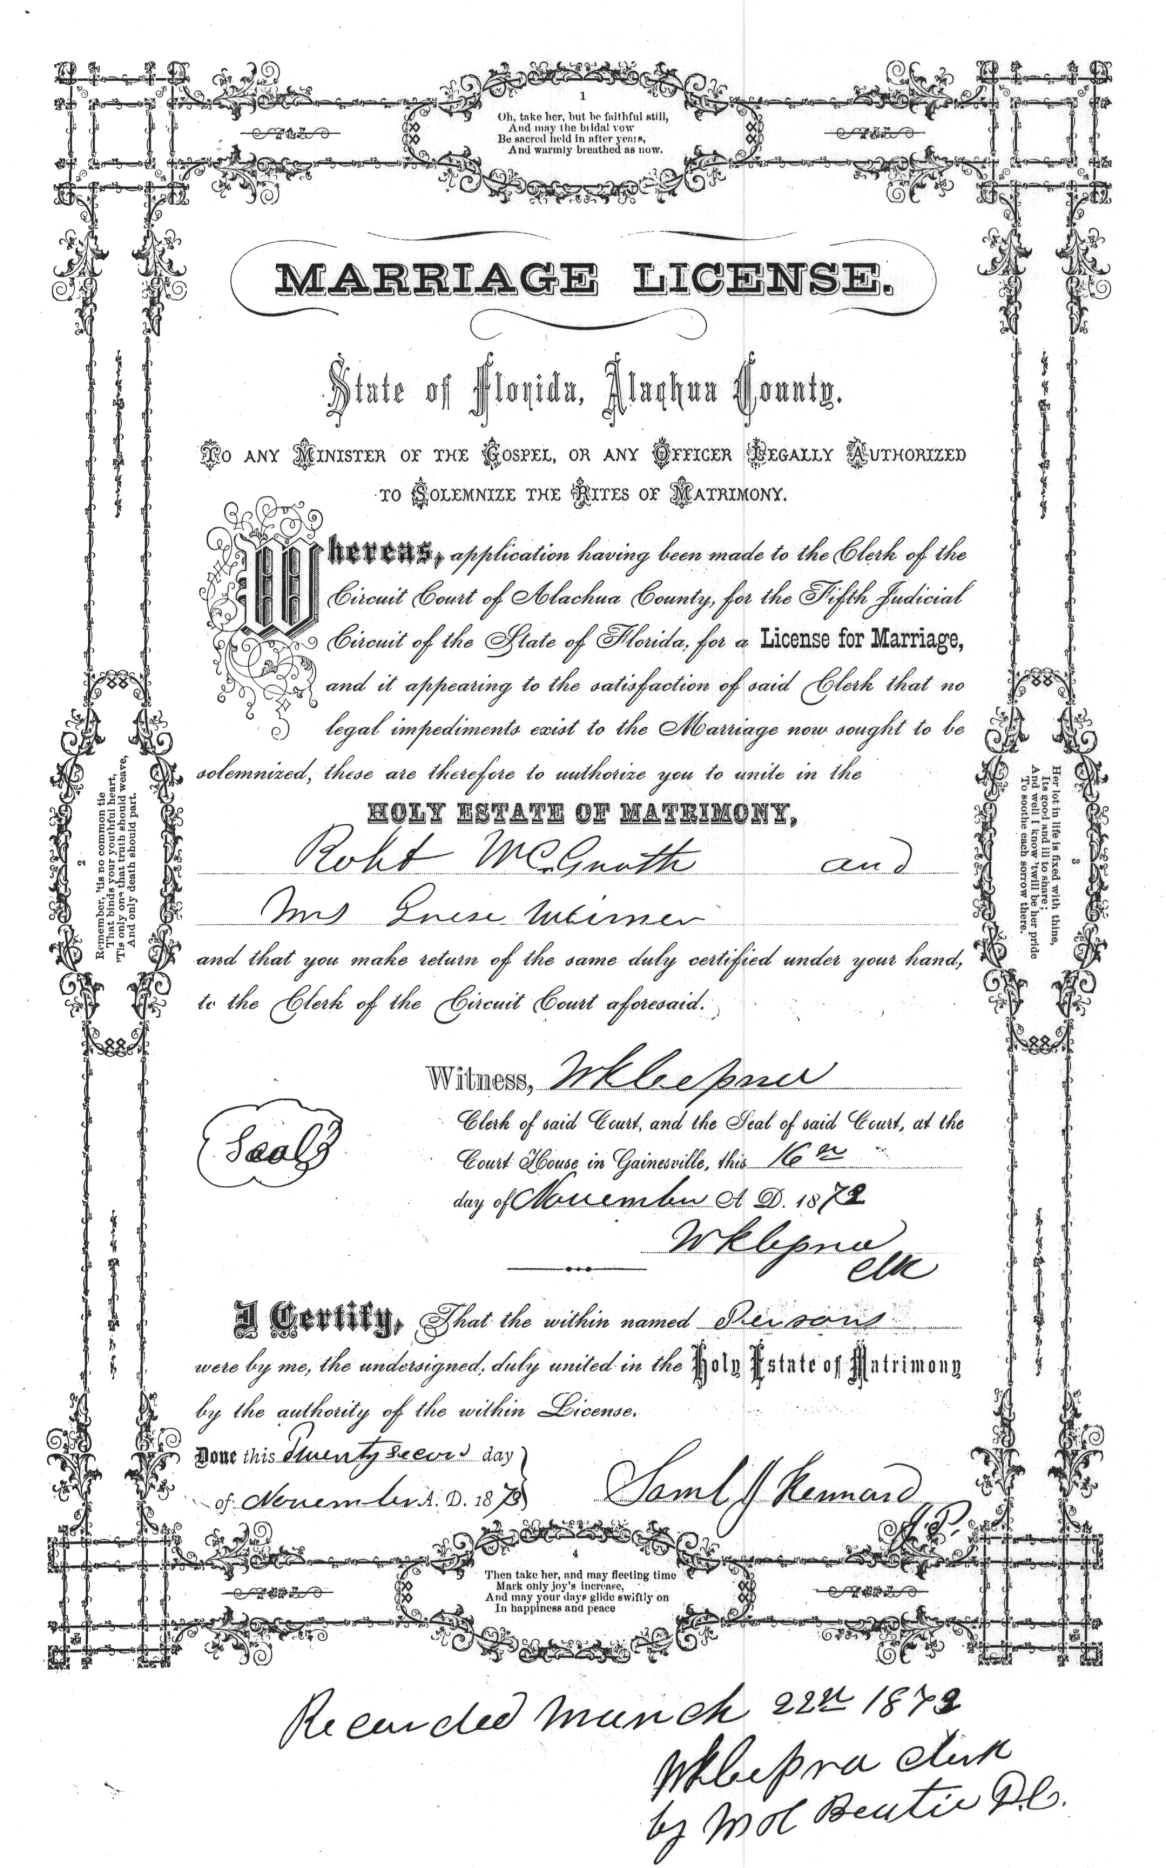 1
Oh, take her, but be faithful still,
And may the bridal vow
Be sacred held in after years,
And warmly breathed as now.
MARRIAGE LICENSE.
State of Florida, Alachua County.
TO ANY MINISTER OF THE GOSPEL, OR ANY OFFICER LEGALLY AUTHORIZED
TO SOLEMNIZE THE RITES OF MATRIMONY.
Whereas, application having been made to the Clerk of the
Circuit Court of Alachua County, for the Fifth Judicial
Circuit of the State of Florida, for a License for Marriage,
and it appearing to the satisfaction of said Clerk that no
legal impediments exist to the Marriage now sought to be
solemnized, these are therefore to authorize you to unite in the
HOLY ESTATE OF MATRIMONY,
Robt McGrath and
Mrs
and that you make return of the same duly certified under your hand,
to the Clerk of the Circuit Court aforesaid.
2
Remember, 'tis no common tie
That binds your youthful heart,
'Tis only one that truth should weave,
And only death should part.
3
Her lot in life is fixed with thine,
Its good and ill to share;
And well I know 'twill be her pride
To soothe each sorrow there.
Witness, WK Cessna
Clerk of said Court, and the Seal of said Court, at the
Seal
Court House in Gainesville, this 16th
day of November A D. 187
WK Cessna
Clk
I Certify, That the within named Persons
were by me, the undersigned, duly united in the Holy Estate of Matrimony
by the authority of the within License.
Done this Twenty Second day
of November A. D. 187
Saml J Kennard
J.P.
4
Then take her, and may fleeting time
Mark only joy's increase,
And may your days glide swiftly on
In happiness and peace
Recorded March 22nd 187
WK Cessna Clerk
by D.C.